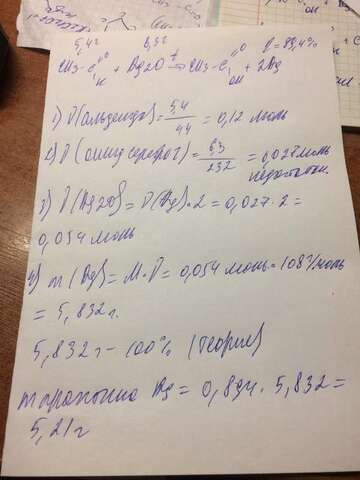 5,4г 6,3г η=89,4%
CH3-C=O H + Ag2O →t CH3-C=O OH + 2Ag
1) ν(альдегида) = 5,4/44 = 0,12 моль
2) ν(оксид серебра) = 6,3/232 = 0,027 моль
недостаток
3) ν(Ag2O) = ν(Ag)·2 = 0,027·2 =
0,054 моль
4) m(Ag) = M·ν = 0,054 моль·108 г/моль
= 5,832 г.
5,832 г - 100% (теория)
m практ Ag = 0,894·5,832 =
5,21 г